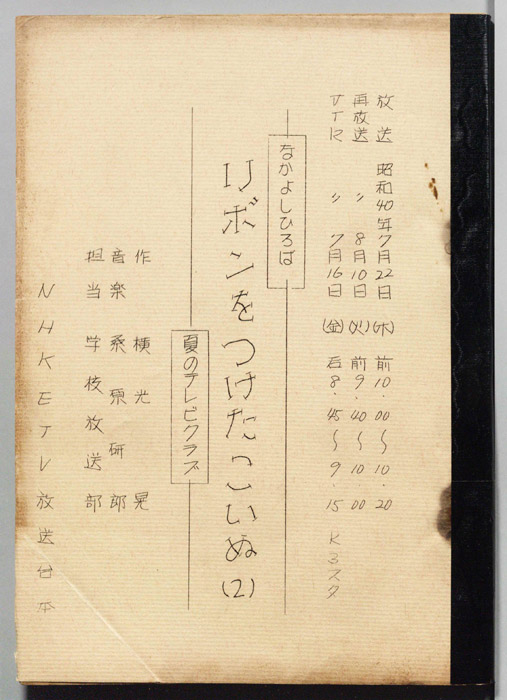 放送 昭和40年7月22日 (木) 前10・00〜10・20
再放送 〃 8月10日 (火) 前9・40〜10・00
VTR 〃 7月16日 (金) 后8・45〜9・15 K3スタ
なかよしひろば
リボンをつけたこいぬ(2)
夏のテレビクラブ
作 横光晃
音楽 桑原研郎
担当 学校放送部
NHKETV放送台本